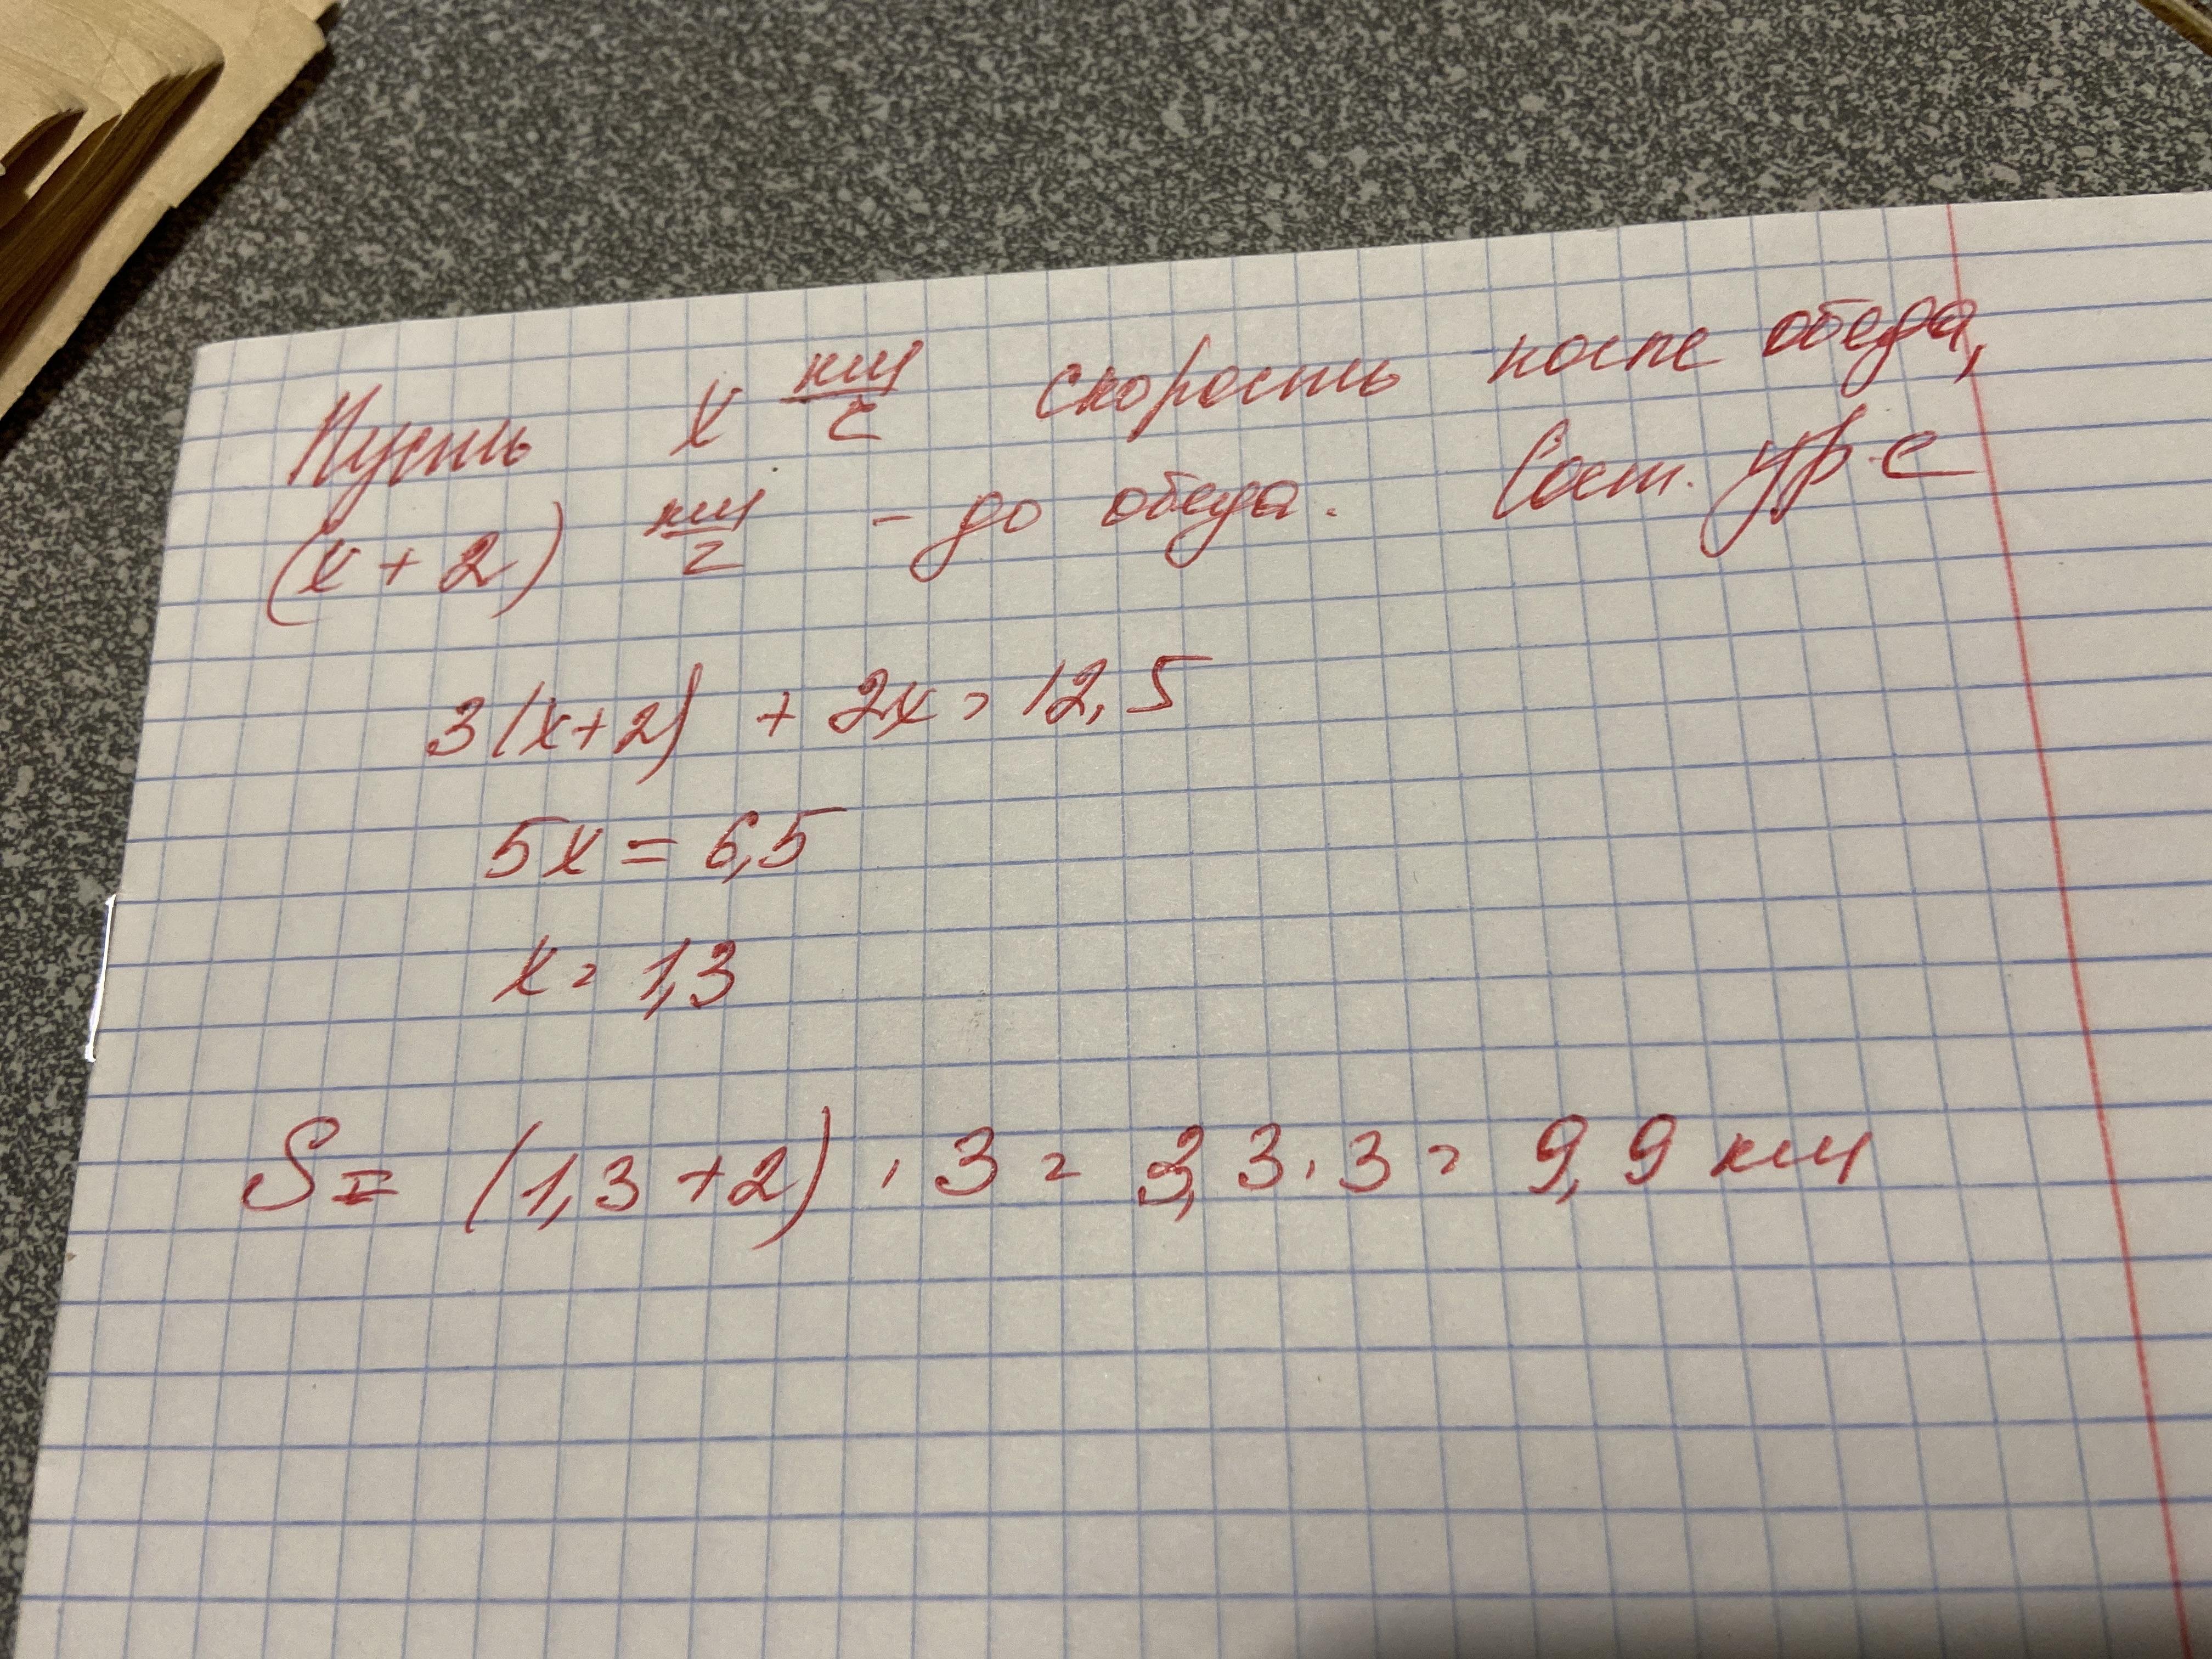 Пусть x км/г скорость после обеда,
(x + 2) км/г - до обеда. Сост. ур-е
3(x+2) + 2x = 12,5
5x = 6,5
x = 1,3
S = (1,3 + 2) · 3 = 3,3 · 3 = 9,9 км